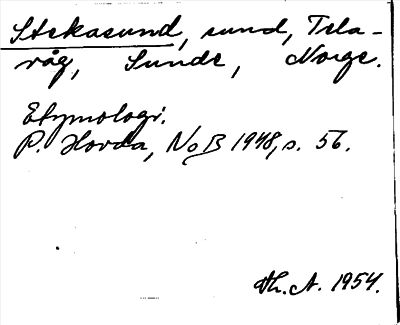 Stekasund, sund, Tela-
våg, Sunde, Norge.
Etymologi.
P. Hovda, NoB 1948, s. 56.
Th. A. 1954.